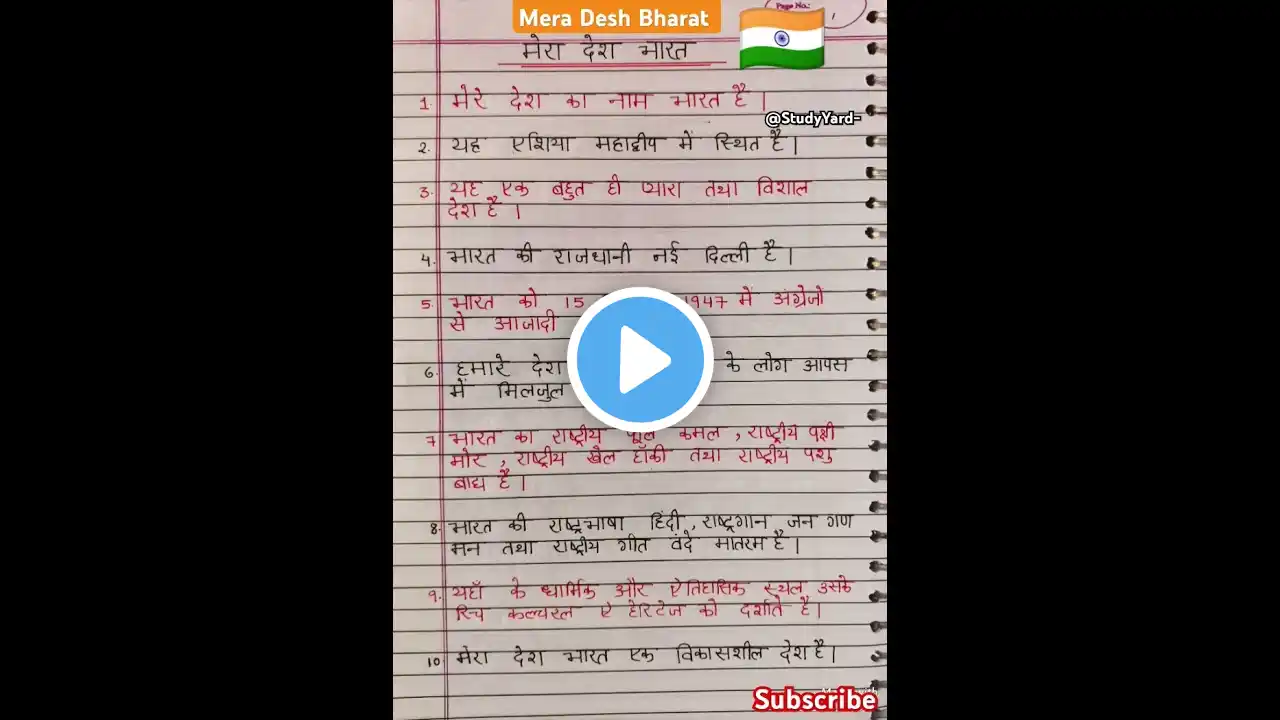 Mera Desh Bharat
Page No.:
1
मेरा देश भारत
1. मेरे देश का नाम भारत है।
@StudyYard-
2. यह एशिया महाद्वीप में स्थित है।
3. यह एक बहुत ही प्यारा तथा विशाल
देश है।
4. भारत की राजधानी नई दिल्ली है।
5. भारत को 15 1947 में अंग्रेजो
से आजादी
6. हमारे देश के लोग आपस
में मिलजुल
7 भारत का राष्ट्रीय फूल कमल, राष्ट्रीय पक्षी
मोर, राष्ट्रीय खेल हॉकी तथा राष्ट्रीय पशु
बाघ है।
8. भारत की राष्ट्रभाषा हिंदी, राष्ट्रगान जन गण
मन तथा राष्ट्रीय गीत वंदे मातरम है।
9. यहाँ के धार्मिक और ऐतिहासिक स्थल उसके
रिच कल्चरल ऐ हेरिटेज को दर्शाते है।
10. मेरा देश भारत एक विकासशील देश है।
Subscribe